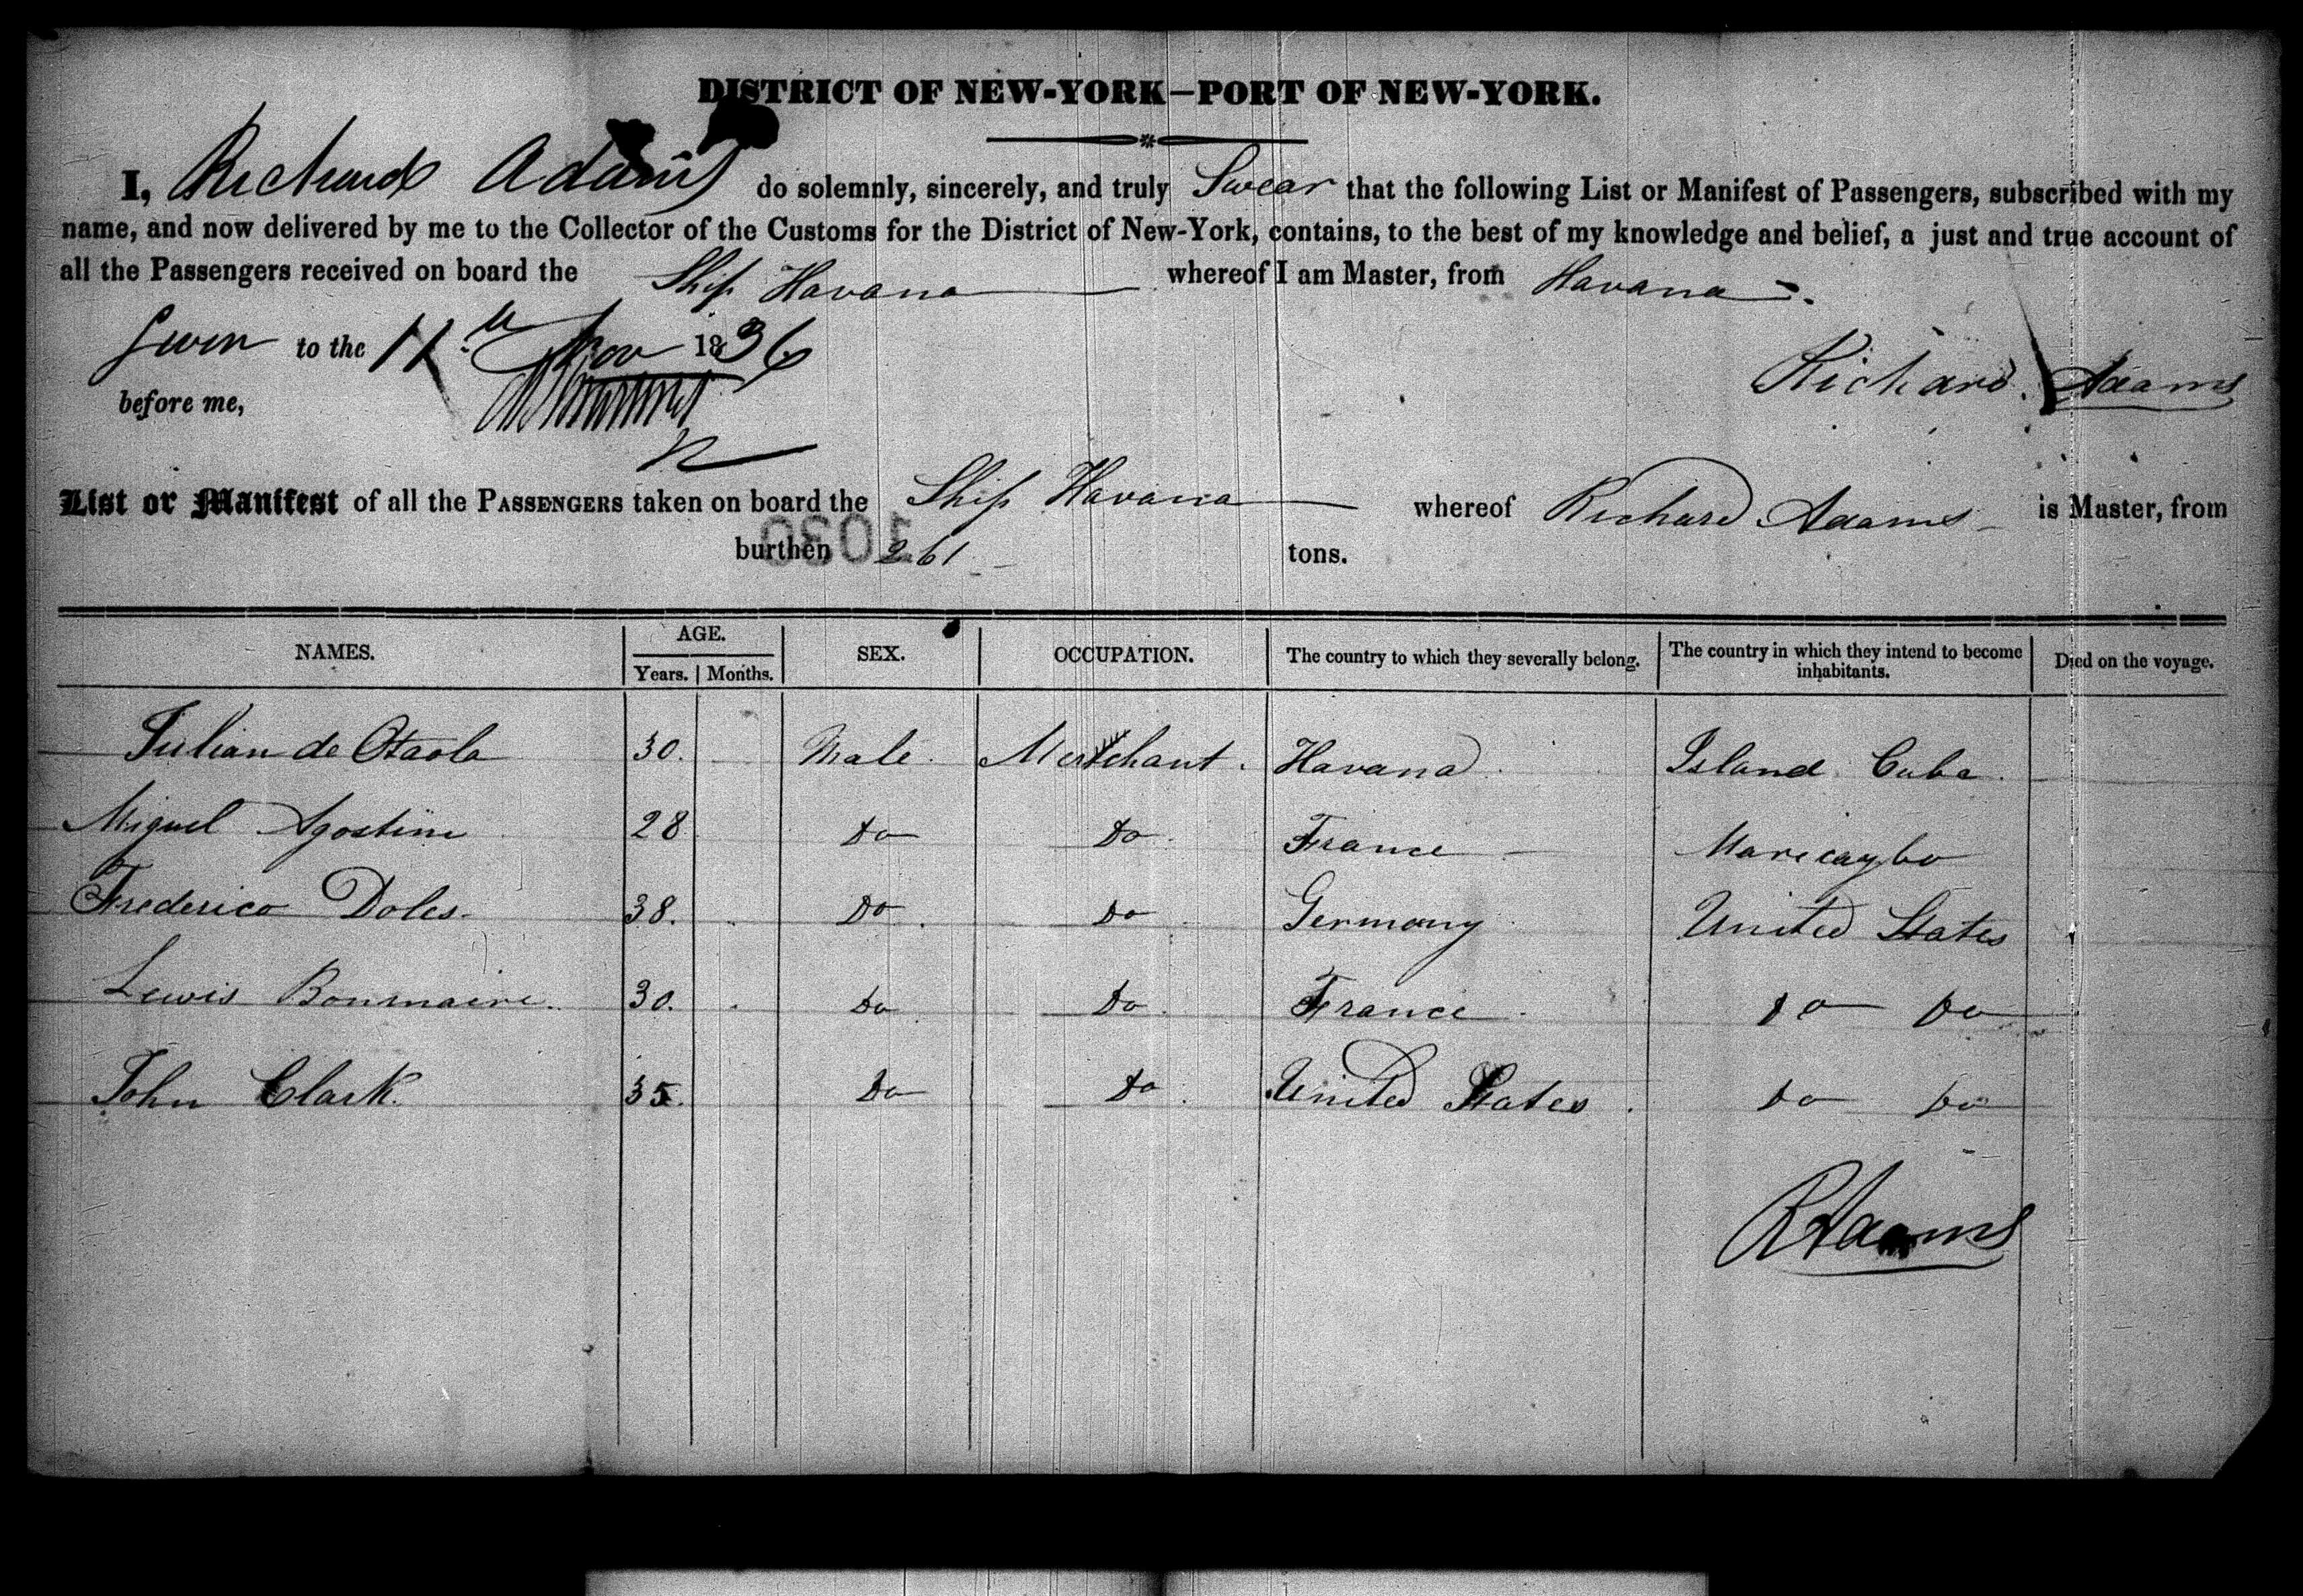 DISTRICT OF NEW-YORK—PORT OF NEW-YORK.
I, Richard Adams do solemnly, sincerely, and truly Swear that the following List or Manifest of Passengers, subscribed with my
name, and now delivered by me to the Collector of the Customs for the District of New-York, contains, to the best of my knowledge and belief, a just and true account of
all the Passengers received on board the Ship Havana whereof I am Master, from Havana
Sworn to the 11th Nov 1836
Richard Adams
before me,
List or Manifest of all the PASSENGERS taken on board the Ship Havana whereof Richard Adams is Master, from
burthen 261 tons.
1030
NAMES. AGE. Years. Months. SEX. OCCUPATION. The country to which they severally belong. The country in which they intend to become inhabitants. Died on the voyage.
Julian de Otaola 30. Male. Merchant. Havana Island Cuba.
Miguel Agostini 28 Do Do France Maricaybo
Frederico Doles 38. Do Do Germany United States
Lewis Bonmaire 30. Do Do France Do Do
John Clark 35. Do Do United States Do Do
R Adams